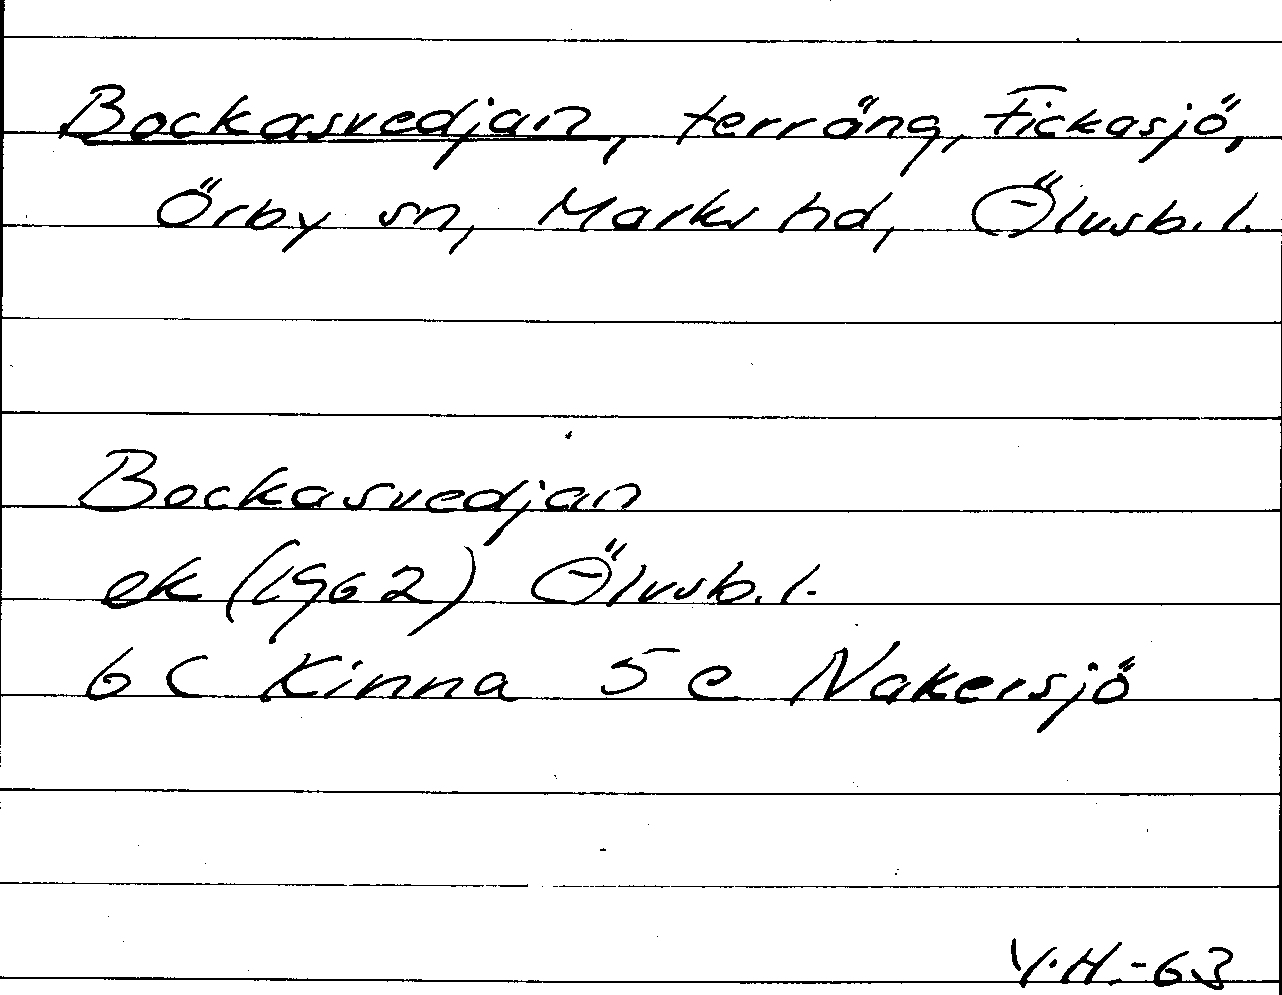 Bockasvedjan, terräng, Fickasjö,
Örby sn, Marks hd, Ölvsb.l.
Bockasvedjan
ek (1962) Ölvsb.l.
6 C Kinna 5 e Nakersjö
V.H.-63